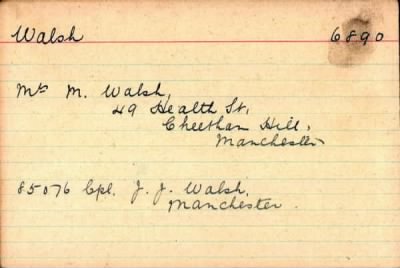 Walsh 6890
Mrs M. Walsh,
49 Health St,
Cheethan Hill,
Manchester
85076 Cpl. J. J. Walsh,
Manchester.